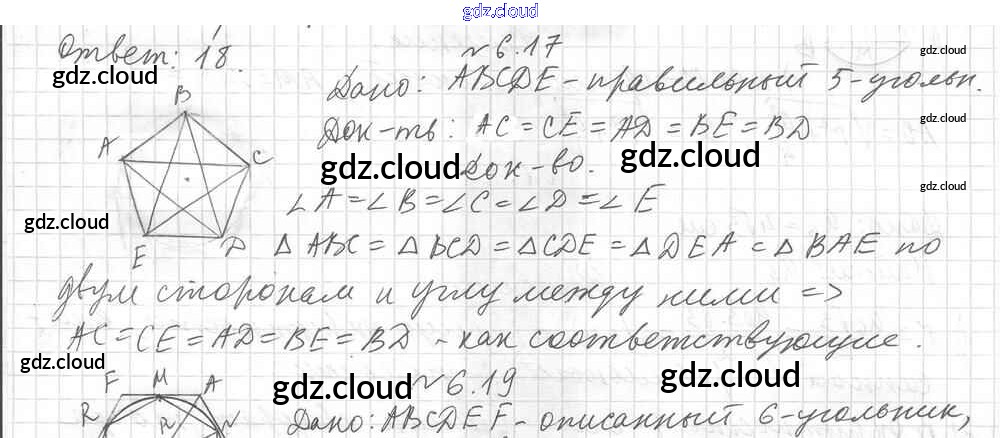 gdz.cloud
Ответ: 18.
№ 6.17
gdz.cloud
gdz.cloud
Дано: ABCDE - правильный 5-угольн.
B
gdz.cloud
Док-ть: AC = CE = AD = BE = BD
A
C
gdz.cloud
gdz.cloud
Док-во.
∠A = ∠B = ∠C = ∠D = ∠E
gdz.cloud
gdz.cloud
E
D
△ABC = △BCD = △CDE = △DEA = △BAE по
двум сторонам и углу между ними =>
AC = CE = AD = BE = BD - как соответствующие.
gdz.cloud
gdz.cloud
gdz.cloud
№ 6.19
F
M
A
R
N
Дано: ABCDEF - описанный 6-угольник,